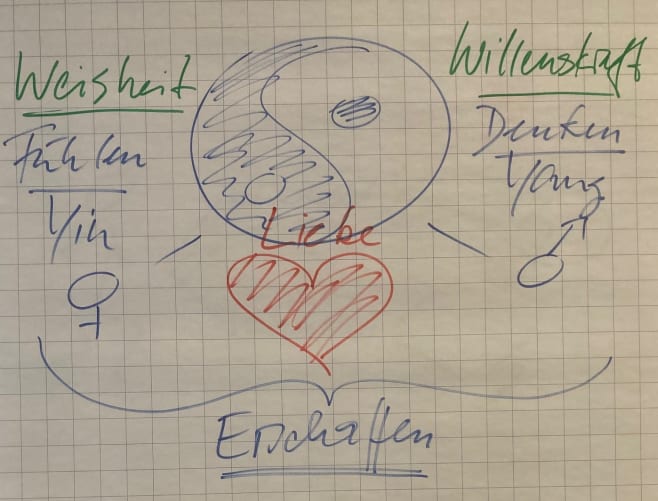 Weisheit
Fühlen
Yin
Willenskraft
Denken
Yang
Liebe
Erschaffen